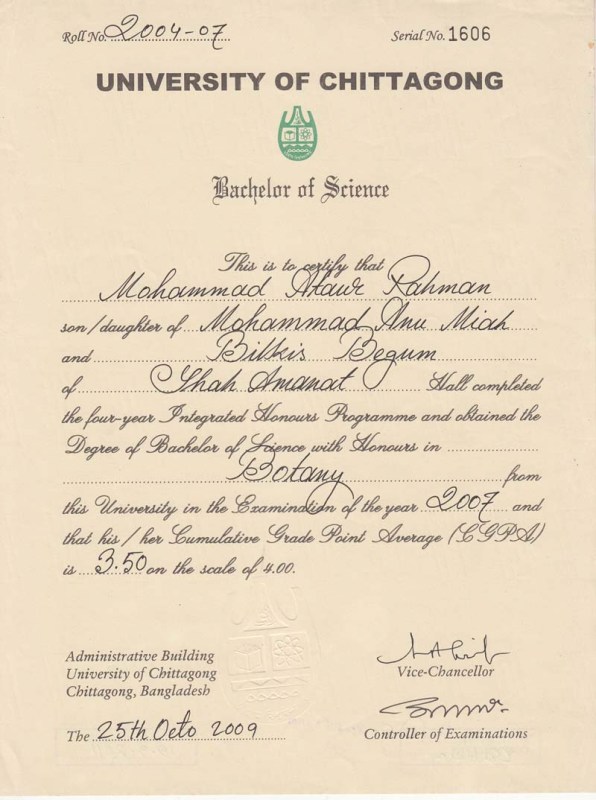 Roll No. 2004-07
Serial No. 1606
UNIVERSITY OF CHITTAGONG
Bachelor of Science
This is to certify that
Mohammad Ataur Rahman
son/daughter of Mohammad Anu Miah
and Bilkis Begum
of Shah Amanat Hall completed
the four-year Integrated Honours Programme and obtained the
Degree of Bachelor of Science with Honours in
Botany from
this University in the Examination of the year 2007 and
that his / her Cumulative Grade Point Average (CGPA)
is 3.50 on the scale of 4.00.
Administrative Building
University of Chittagong
Chittagong, Bangladesh
The 25th Octo 2009
Vice-Chancellor
Controller of Examinations